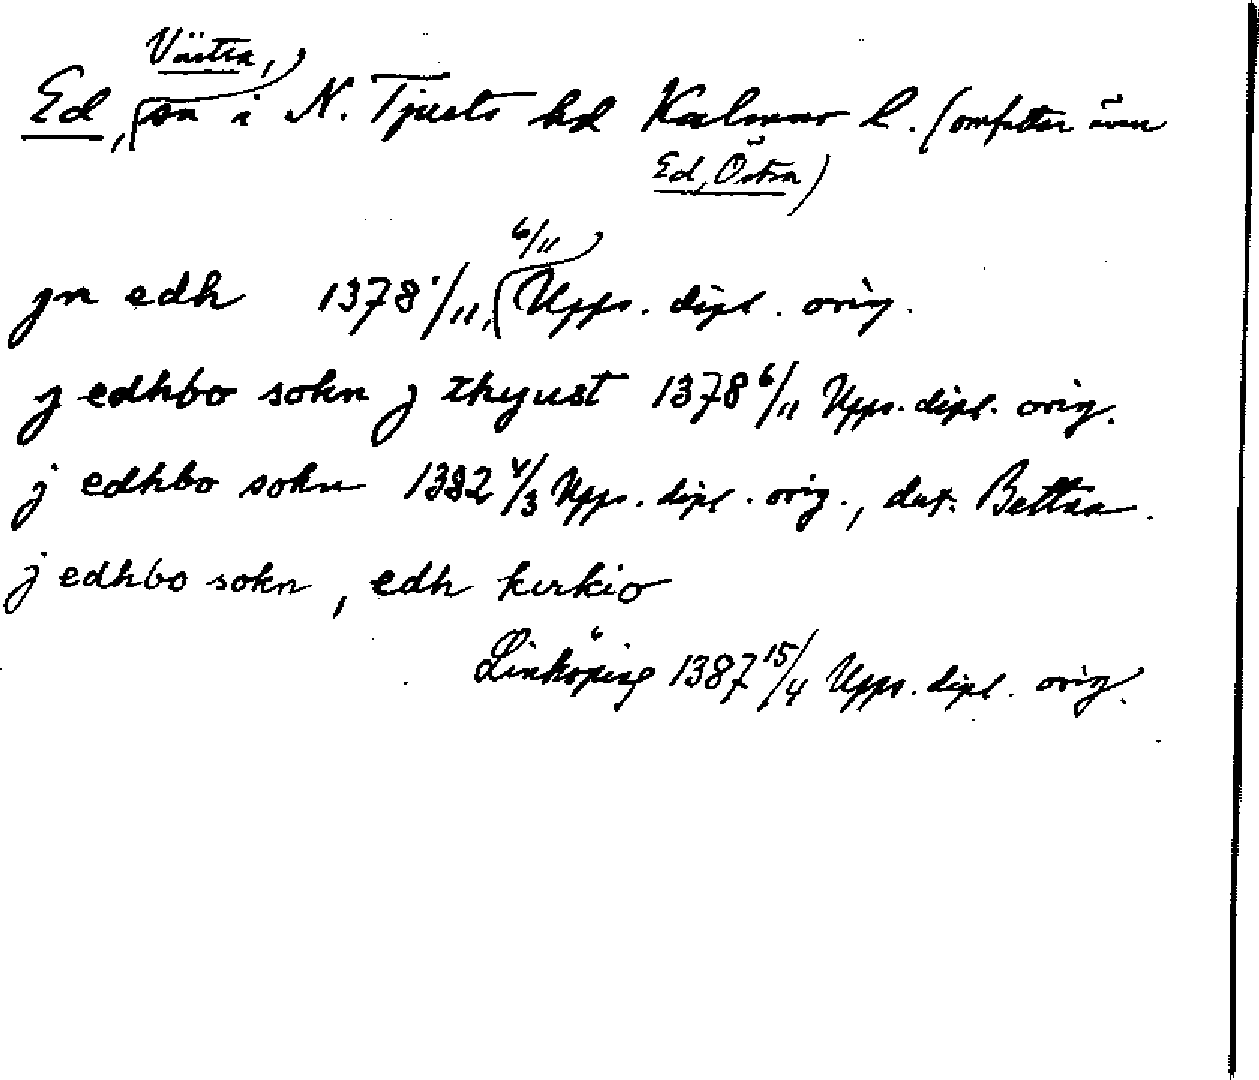 Ed, Västra, sn i N. Tjusts hd Kalmar l. (omfattar även
Ed, Östra)
jn edh 1378 1/11, 6/11 Upps. dipl. orig.
j edhbo sokn j thyust 1378 6/11 Upps. dipl. orig.
j edhbo sokn 1382 4/3 Upps. dipl. orig., dat. Bettna.
j edhbo sokn, edh kirkio
Linköping 1387 15/4 Upps. dipl. orig.